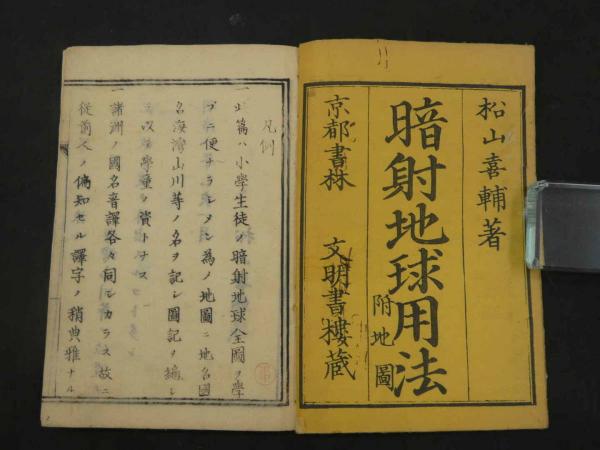 松山喜輔著
暗射地球用法
附地圖
京都書林　文明書樓蔵
凡例
一此篇ハ小学生徒ノ暗射地球全圖ヲ學
ブニ便ナラシメン為ノ地圖ニ地名國
名海灣山川等ノ名ヲ記シ圖記ヲ編シ
以テ學童ノ資トナス
一諸洲ノ國名音譯各々同シカラス故ニ
従前人ノ偏知セル譯字ノ稍典雅ナル